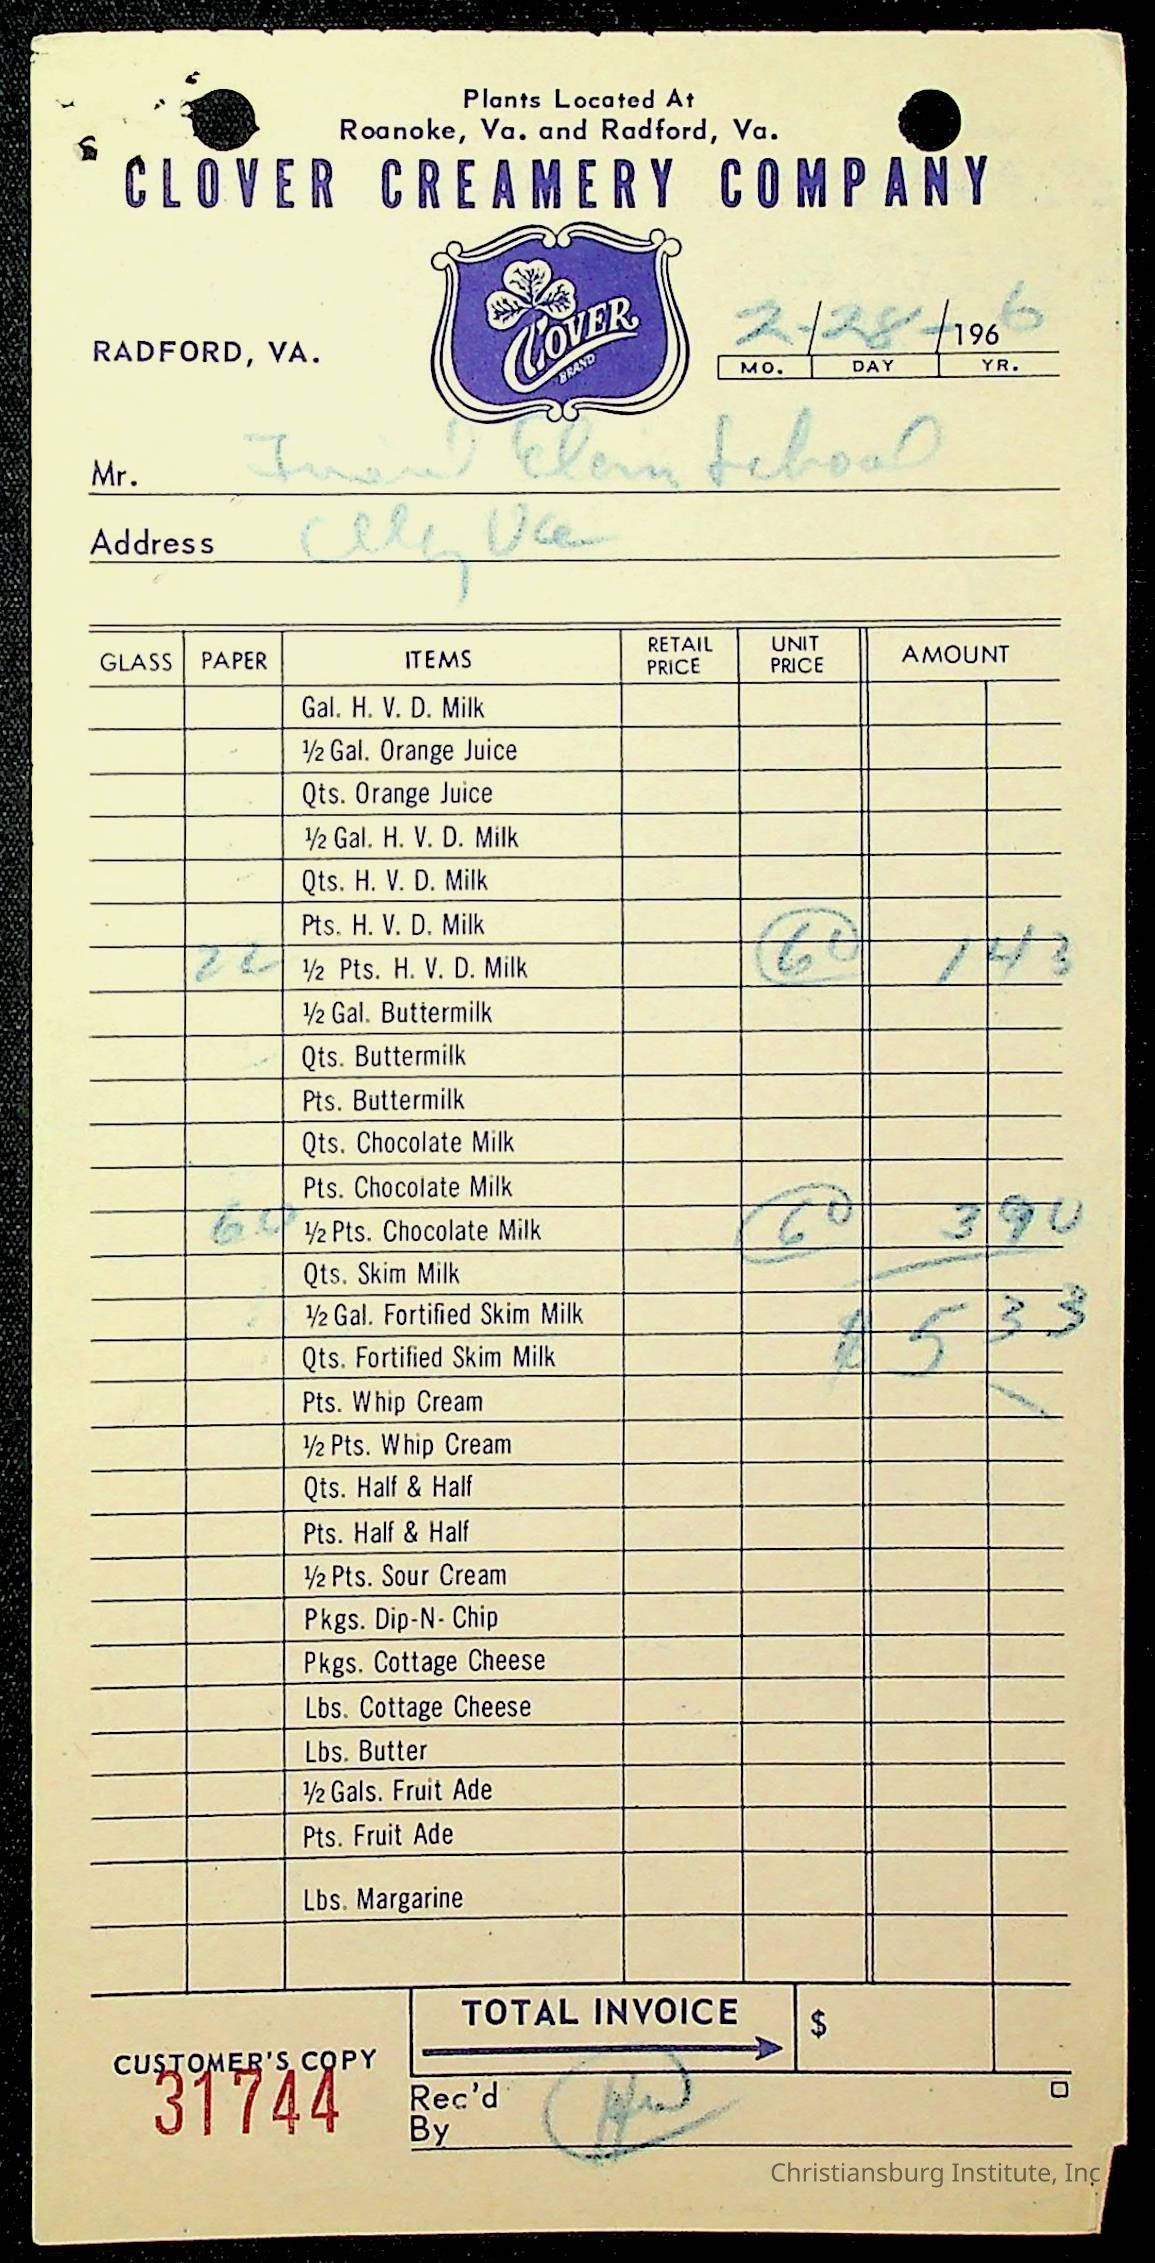 Plants Located At
Roanoke, Va. and Radford, Va.
CLOVER CREAMERY COMPANY
CLOVER
BRAND
RADFORD, VA.
2-/28-/1966
MO. DAY YR.
Mr. Elem School
Address Va
GLASS PAPER ITEMS RETAIL PRICE UNIT PRICE AMOUNT
Gal. H. V. D. Milk
½ Gal. Orange Juice
Qts. Orange Juice
½ Gal. H. V. D. Milk
Qts. H. V. D. Milk
Pts. H. V. D. Milk
22 ½ Pts. H. V. D. Milk 60 1 43
½ Gal. Buttermilk
Qts. Buttermilk
Pts. Buttermilk
Qts. Chocolate Milk
Pts. Chocolate Milk
60 ½ Pts. Chocolate Milk 60 3 90
Qts. Skim Milk
½ Gal. Fortified Skim Milk $ 5 33
Qts. Fortified Skim Milk
Pts. Whip Cream
½ Pts. Whip Cream
Qts. Half & Half
Pts. Half & Half
½ Pts. Sour Cream
Pkgs. Dip-N-Chip
Pkgs. Cottage Cheese
Lbs. Cottage Cheese
Lbs. Butter
½ Gals. Fruit Ade
Pts. Fruit Ade
Lbs. Margarine
TOTAL INVOICE $
CUSTOMER'S COPY
31744
Rec'd
By
Christiansburg Institute, Inc